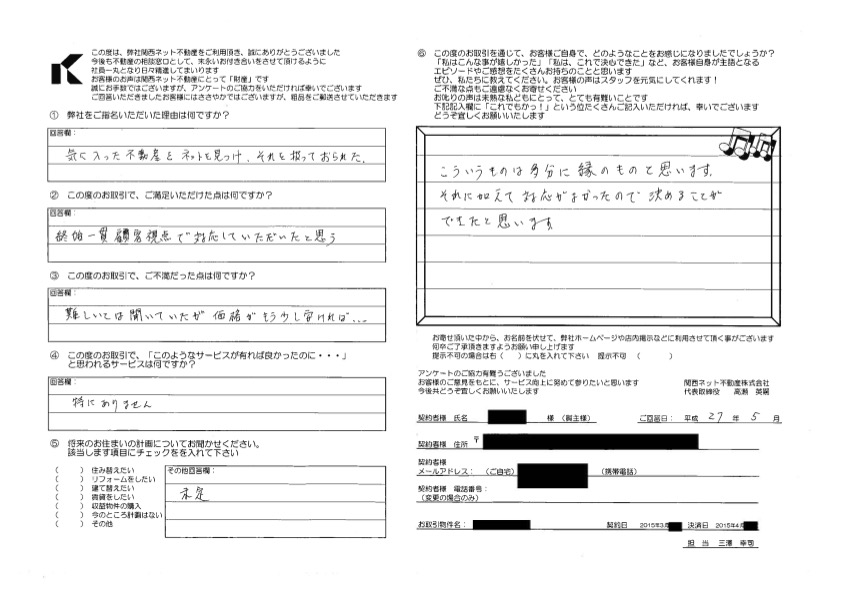 この度は、弊社関西ネット不動産をご利用頂き、誠にありがとうございました
今後も不動産の相談窓口として、末永いお付き合いをさせて頂けるように
社員一丸となり日々精進してまいります
お客様のお声は関西ネット不動産にとって「財産」です
誠にお手数ではございますが、アンケートのご協力をいただければ幸いでございます
ご回答いただきましたお客様にはささやかではございますが、粗品をご郵送させていただきます
① 弊社をご指名いただいた理由は何ですか？
回答欄：
気に入った不動産をネットで見つけ、それを扱っておられた。
② この度のお取引で、ご満足いただけた点は何ですか？
回答欄：
終始一貫顧客視点で対応していただいたと思う
③ この度のお取引で、ご不満だった点は何ですか？
回答欄：
難しいとは聞いていたが価格がもう少し安ければ...
④ この度のお取引で、「このようなサービスが有れば良かったのに・・・」
と思われるサービスは何ですか？
回答欄：
特にありません
⑤ 将来のお住まいの計画についてお聞かせください。
該当します項目にチェックをを入れて下さい
（　　） 住み替えたい
（　　） リフォームをしたい
（　　） 建て替えたい
（　　） 賃貸をしたい
（　　） 収益物件の購入
（　　） 今のところ計画はない
（　　） その他
その他回答欄：
未定
⑥ この度のお取引を通じて、お客様ご自身で、どのようなことをお感じになりましたでしょうか？
「私はこんな事が嬉しかった」「私は、これで決心できた」など、お客様自身が主語となる
エピソードやご感想をたくさんお持ちのことと思います
ぜひ、私たちに教えてください。お客様の声はスタッフを元気にしてくれます！
ご不満な点もご遠慮なくお寄せください
お叱りの声は未熟な私どもにとって、とても有難いことです
下記記入欄に「これでもかっ！」という位たくさんご記入いただければ、幸いでございます
どうぞ宜しくお願いいたします
こういうものは多分に縁のものと思います。
それに加えて対応がよかったので決めることが
できたと思います
お寄せ頂いた中から、お名前を伏せて、弊社ホームページや店内掲示などに利用させて頂く事がございます
何卒ご了承頂きますようお願い申し上げます
提示不可の場合は右（　　）に丸を入れて下さい　提示不可　（　　）
アンケートのご協力有難うございました
お客様のご意見をもとに、サービス向上に努めて参りたいと思います
今後共どうぞ宜しくお願いいたします
関西ネット不動産株式会社
代表取締役　高瀬　英嗣
契約者様 氏名　様（御主様）　ご回答日：　平成 27 年 5 月
契約者様 住所　〒
契約者様
メールアドレス：　（ご自宅）　（携帯電話）
契約者様 電話番号：
（変更の場合のみ）
お取引物件名：　契約日　2015年3月　決済日　2015年4月
担　当　三澤　幸司